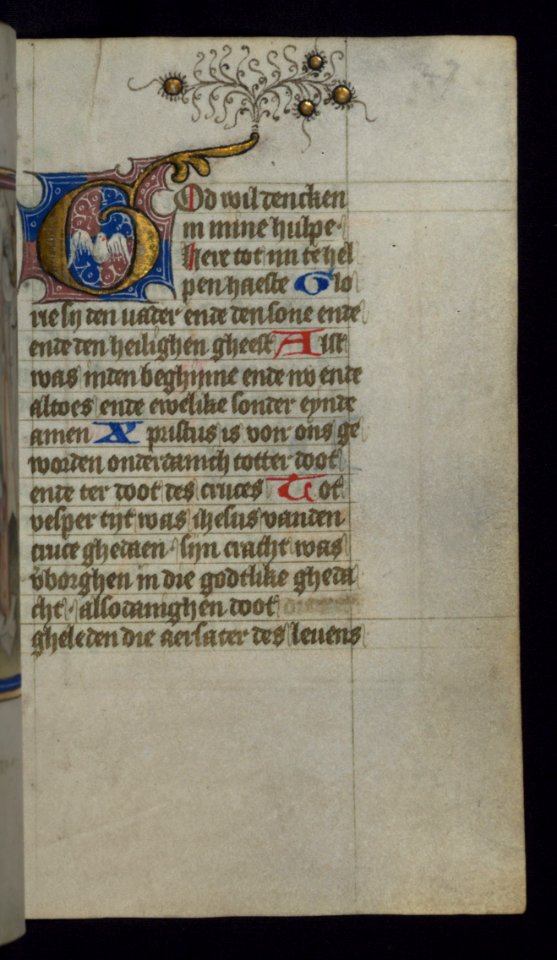 God wil dencken
in mine hulpe·
here tot mi te hel
pen haeste Glo
rie sy den vader ende den sone ende
ende den heilighen gheest Alst
was inden beghinne ende nv ende
altoes ende ewelike sonder eynde
amen Xpristus is voer ons ge
worden onderdanich totter doot
ende ter doot des cruces Tot
vesper tijt was ihesus vanden
cruce ghedaen · sijn cracht was
vborghen in die godtlike gheda
cht · alsodanighen doot
gheleden die aersater des leuens